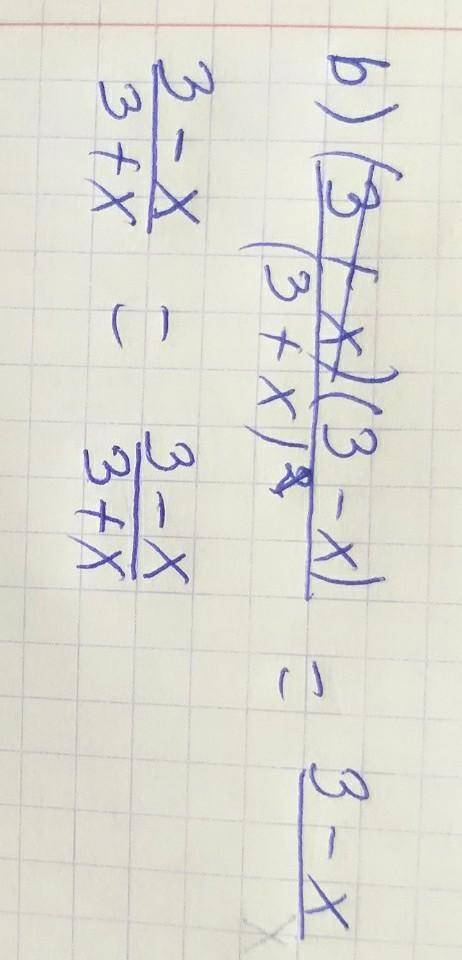 b) (3 + x)(3 - x) / (3 + x)² = 3 - x /
3 - x / 3 + x = 3 - x / 3 + x